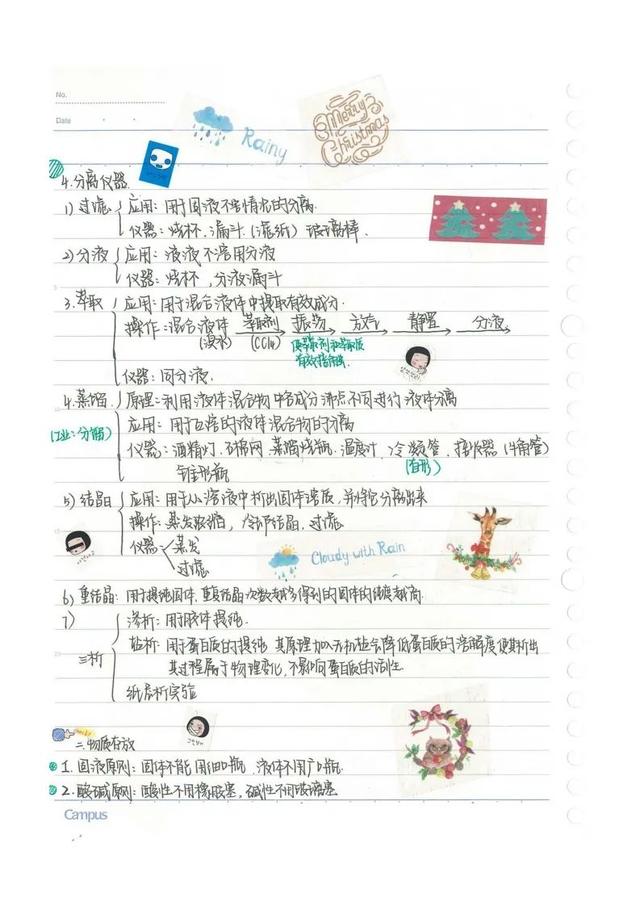 No.
Date
Rainy
Merry
Christmas
4.分离仪器
1)过滤 应用:用于固液不互溶的分离.
仪器:烧杯.漏斗.(滤纸) 玻璃棒.
2)分液 应用:液液不溶用分液
仪器:烧杯,分液漏斗
3.萃取 应用:用于混合液体中提取有效成分.
操作:混合液体 萃取剂 振荡 放气 静置 分液
(溴水) (CCl4) 使萃取剂和萃取质
有效接触
仪器:同分液.
4.蒸馏 原理:利用液体混合物中各成分沸点不同进行液体分离
(工业:分馏) 应用:用于互溶的液体混合物的分离
仪器:酒精灯.石棉网.蒸馏烧瓶.温度计.冷凝管.接收器(牛角管)
(直形)
锥形瓶
5)结晶 应用:用于从溶液中析出固体溶质,并将它分离出来
操作:蒸发浓缩,冷却结晶,过滤.
仪器 蒸发
过滤
Cloudy with Rain
6)重结晶:用于提纯固体,重复结晶次数越多得到的固体的纯度越高.
7) 渗析:用于胶体提纯.
三析 盐析:用于蛋白质的提纯 其原理加入无机盐会降低蛋白质的溶解度使其析出
其过程属于物理变化,不影响蛋白质的活性.
纸层析实验
二.物质存放
1.固液原则:固体不能用细口瓶,液体不用广口瓶.
2.酸碱原则:酸性不用橡胶塞,碱性不用玻璃塞
Campus